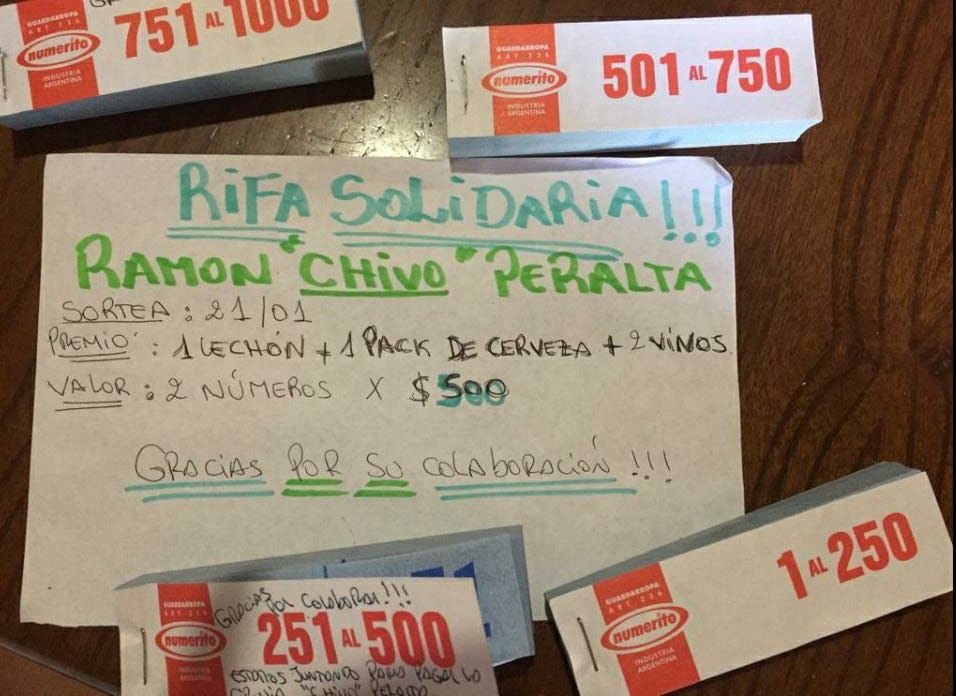 GUARDARROPA
ART 236
numerito
INDUSTRIA
ARGENTINA
751 AL 1000
GUARDARROPA
ART 236
numerito
INDUSTRIA
ARGENTINA
501 AL 750
RIFA SOLIDARIA!!!
RAMON "CHIVO" PERALTA
SORTEA: 21/01
PREMIO: 1 LECHÓN + 1 PACK DE CERVEZA + 2 VINOS.
VALOR: 2 NÚMEROS X $500
GRACIAS POR SU COLABORACIÓN!!!
GUARDARROPA
ART 236
numerito
INDUSTRIA
ARGENTINA
1 AL 250
GUARDARROPA
ART 236
numerito
INDUSTRIA
ARGENTINA
GRACIAS POR COLABORAR!!!
251 AL 500
ESTAMOS JUNTANDO PARA PAGAR LA
"CHIVO"